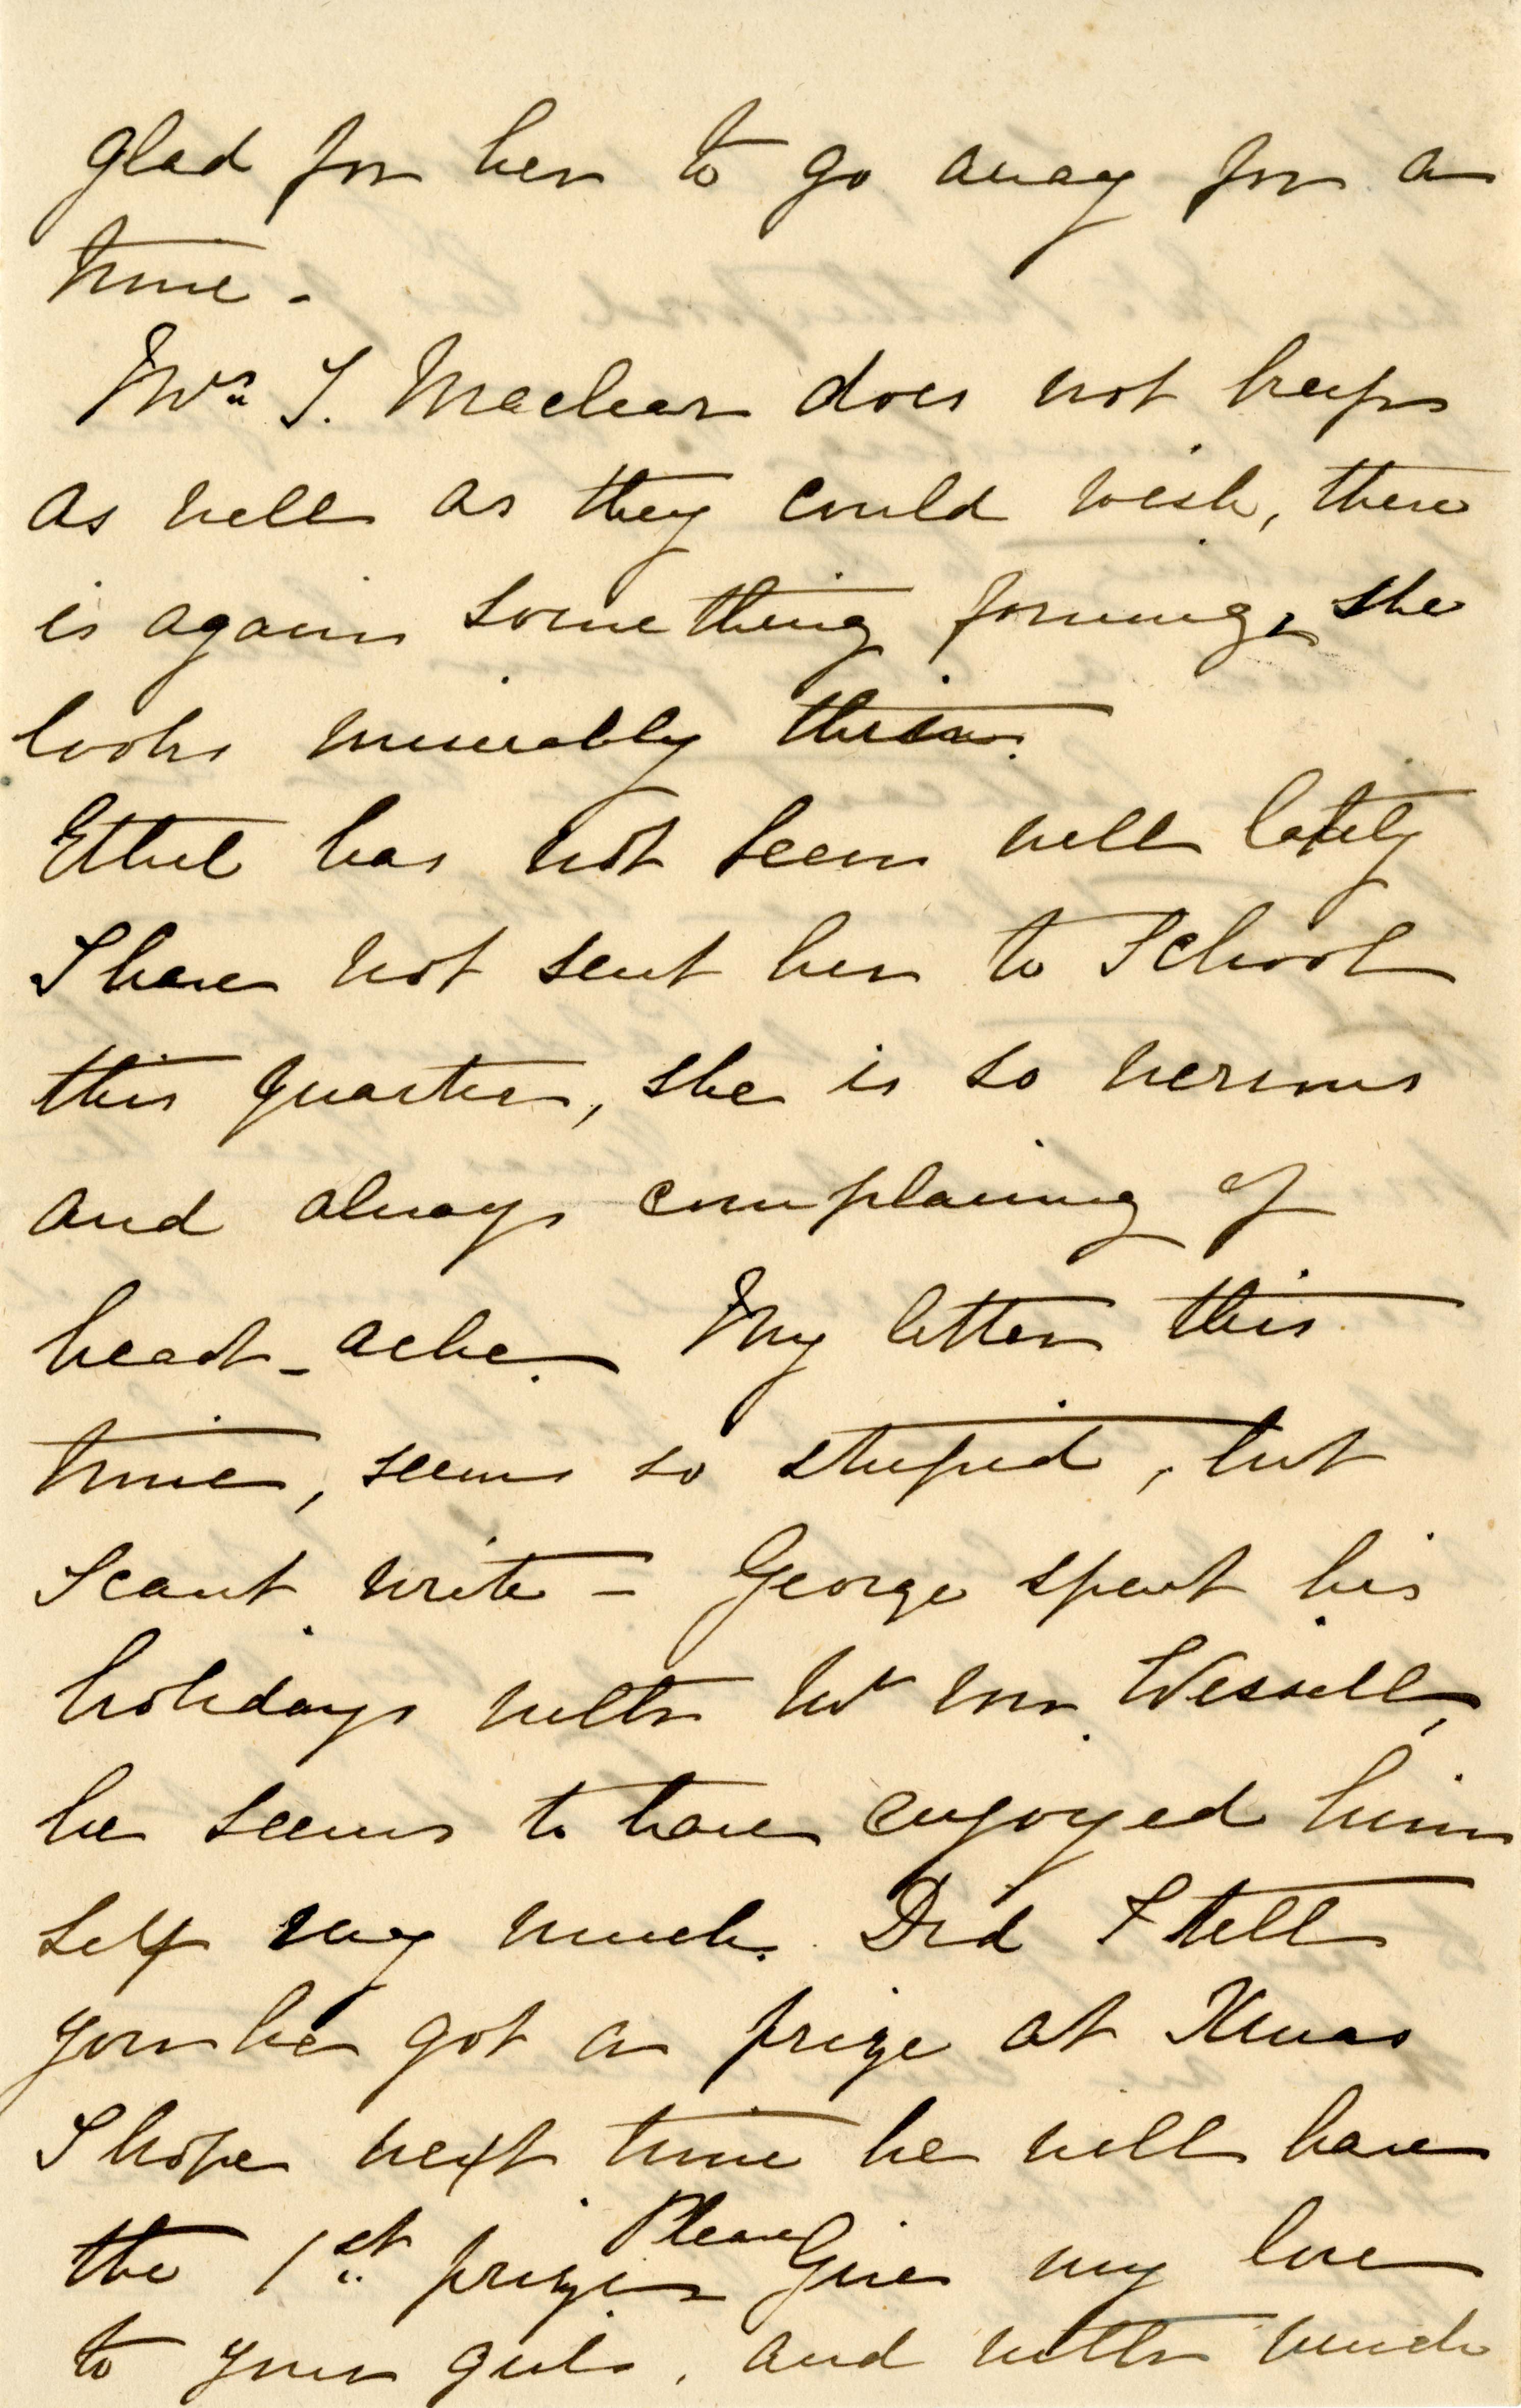 glad for her to go away for a
time -
Mrs J. Maclear does not keep
as well as they could wish, there
is again something forming, she
looks miserably thin.
Ethel has not been well lately
I have not sent her to School
this quarter, she is so nervous
and always complaining of
head-ache. My letter this
time, seems so stupid, but
I cant write - George spent his
holidays with Mr Mrs Wessells,
he seems to have enjoyed him
self very much. Did I tell
you he got a prize at Xmas
I hope next time he will have
the 1st prize Please Give my love
to your girls, and with much